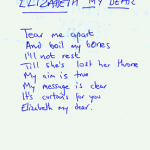 ELIZABETH MY DEAR
Tear me apart
And boil my bones
I'll not rest
Till she's lost her throne
My aim is true
My message is clear
It's curtains for you
Elizabeth my dear.